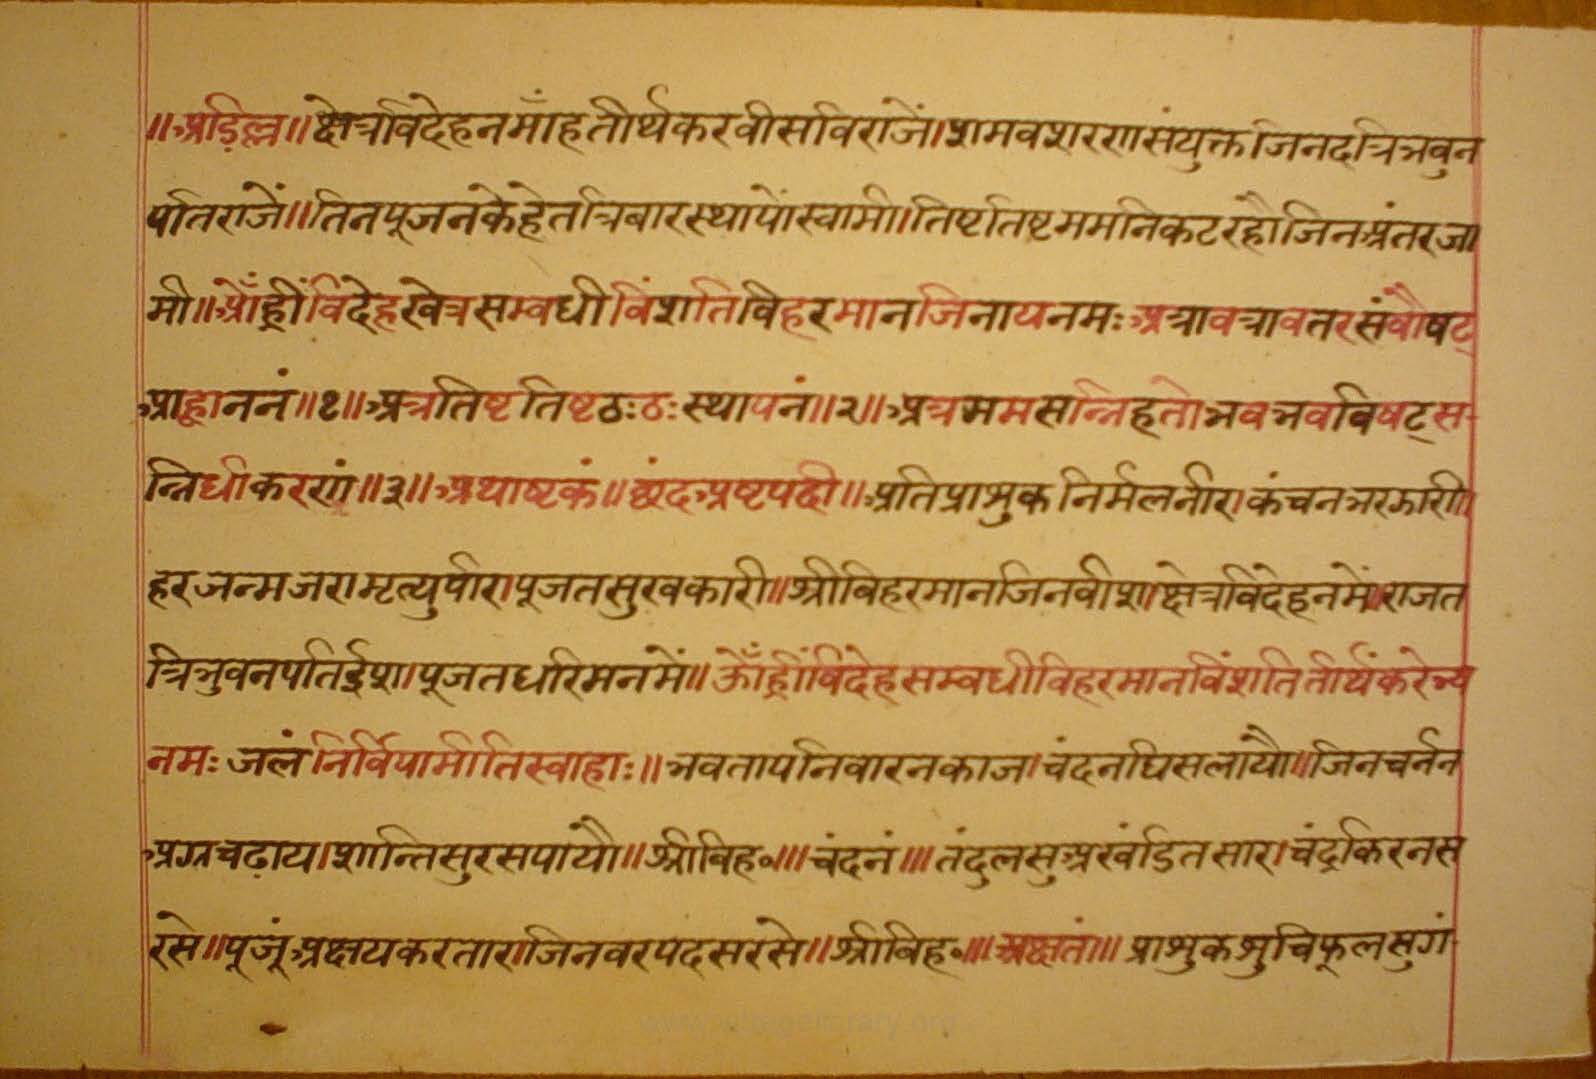 ॥अडिल्ल॥क्षेत्रविदेहनमाँहतीर्थकरवीसविराजें।शमवशरणसंयुक्तजिनदत्रिभवुन
पतिराजें॥तिनपूजनकेहेतत्रिबारस्थापोंस्वामी।तिष्टतिष्टममनिकटरहौजिनअंतरजा
मी॥ओँह्रींविदेहखेत्रसम्वधीविंशतिविहरमानजिनायनमःअत्रावत्रावतरसंवौषट्
आह्वाननं॥१॥अत्रतिष्टतिष्टठःठःस्थापनं॥२॥अत्रममसन्निहतोभवभवविषट्स
न्निधीकरणं॥३॥अथाष्टकं॥छंदअष्टपदी॥अतिप्राशुकनिर्मलनीर।कंचनभरझारी।
हरजन्मजरामृत्युपीर।पूजतसुखकारी॥श्रीविहरमानजिनवीश।क्षेत्रविदेहनमें॥राजत
त्रिभुवनपतिईश।पूजतधरिमनमें॥ऊँह्रींविदेहसम्वधीविहरमानविंशतितीर्थंकरेभ्य
नमःजलंनिर्विपामीतिस्वाहाः॥भवतापनिवारनकाज।चंदनघिसलायौ॥जिनचर्नन
अग्रचढ़ाय।शान्तिसुरसपायौ॥श्रीविह०॥॥चंदनं॥॥तंदुलसुअखंडितसार।चंद्रकिरनस
रसे॥पूजूंअक्षयकरतार।जिनवरपदसरसे॥श्रीविह०॥॥अक्षतं॥॥प्राशुकशुचिफूलसुगं